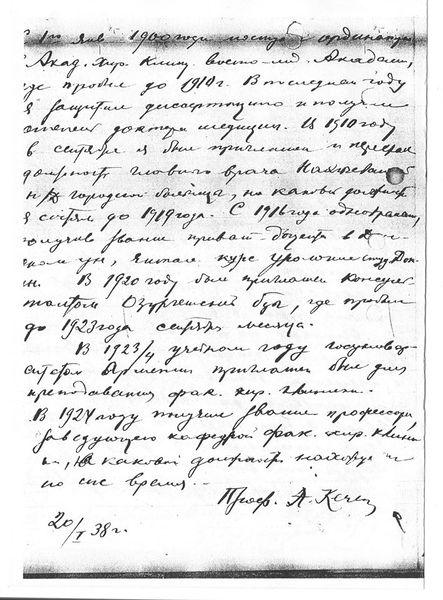 С 1го янв 1906 года поступил ординатором
Акад. хир. клин. воен-мед. Академии,
где пробыл до 1910 г. В последнем году
я защитил диссертацию и получил
степень доктора медицины. С 1910 году
в сентябре я был приглашен и переехал
должность главного врача Нахичеван
н/Д городской больницы, на каковой должности
я состоял до 1919 года. С 1916 года одновременно,
получив звание приват-доцента в Дон
ском ун, читал курс урологии студ. Дон
ун. В 1920 году был приглашен консуль
тантом Озургетской б-цы, где пробыл
до 1923 года сентября месяца.
В 1923/4 учебном году госунивер
ситетом Армении приглашен был для
преподавания фак. хир. клиники.
В 1924 году получил звание профессора,
заведующего кафедрой фак. хир. клини
ки, на каковой должности нахожусь и
по сие время.
Проф. А. Кечек
20/I 38 г.